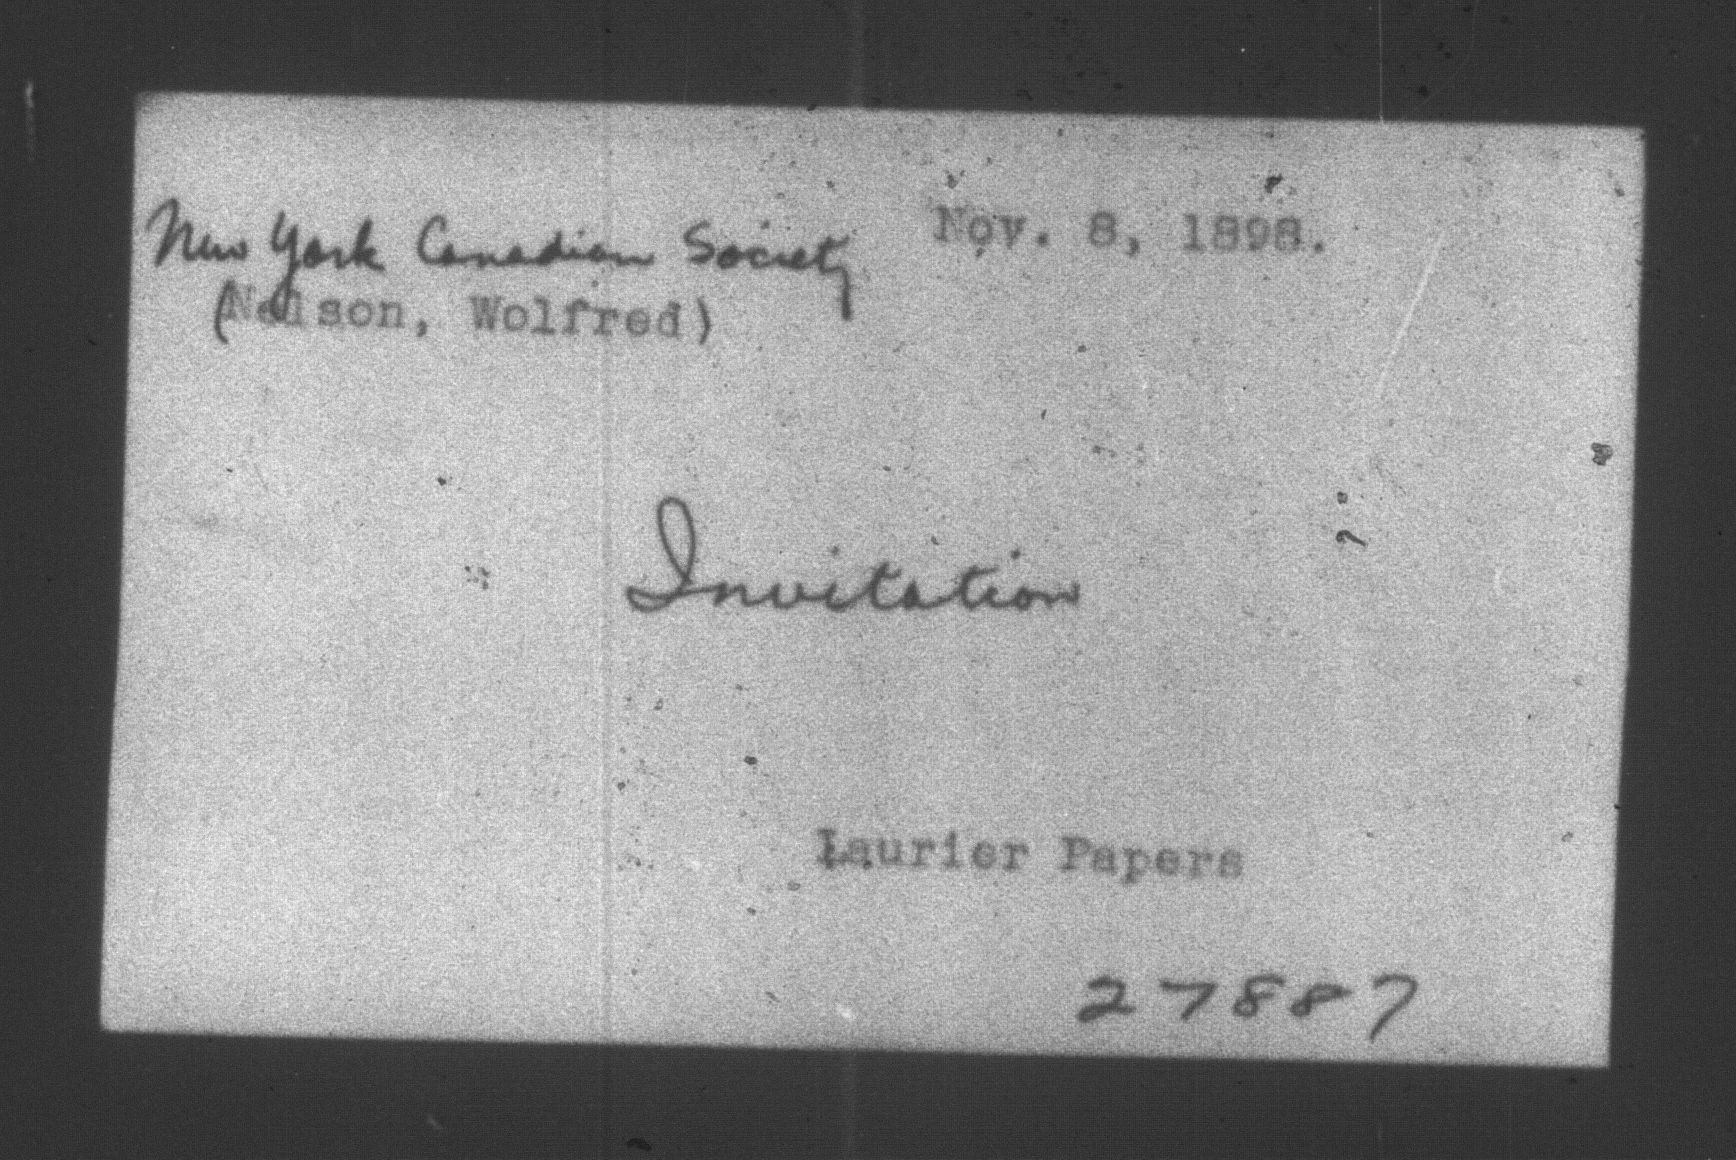 New York Canadian Society
Nov. 8, 1898.
(Nelson, Wolfred)
Invitation
Laurier Papers
27887